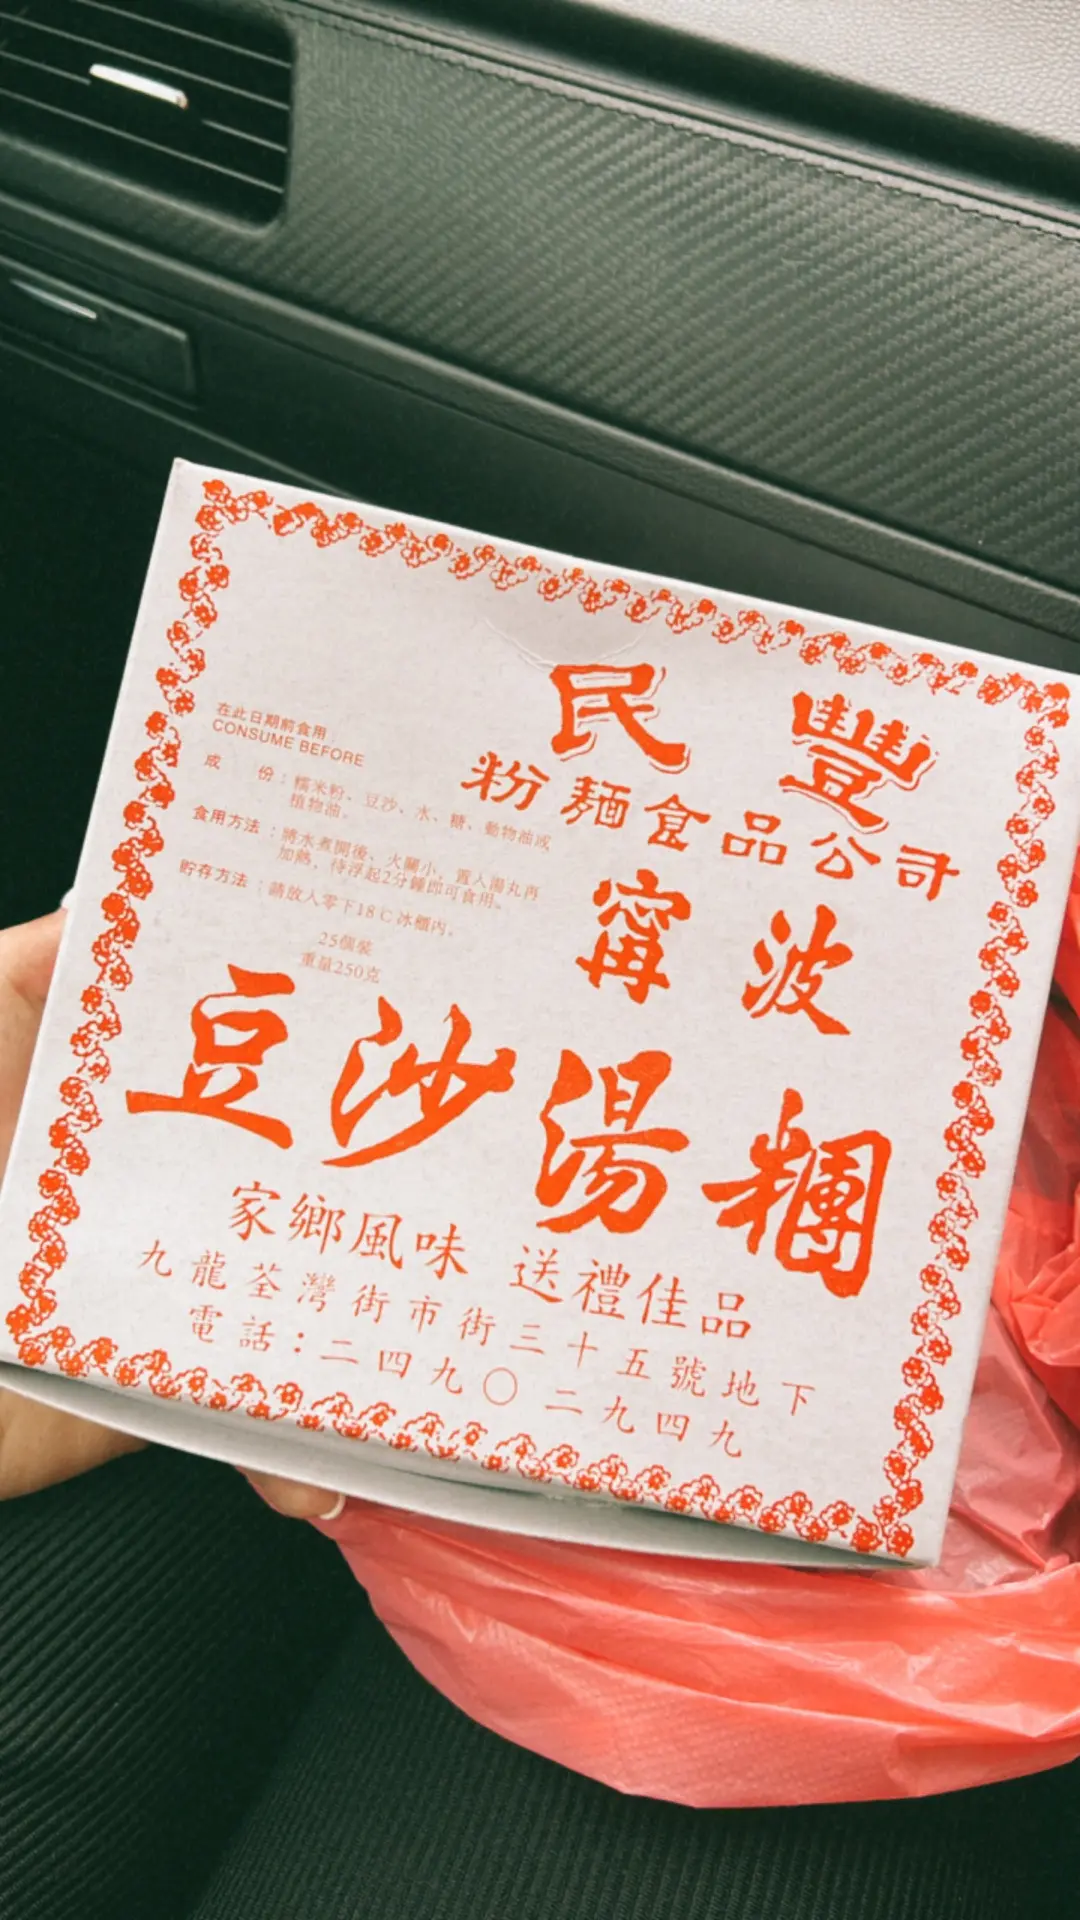 民豐
粉麵食品公司
在此日期前食用
CONSUME BEFORE
成份：糯米粉、豆沙、水、糖、動物油或
植物油。
食用方法：將水煮開後、火關小、置入湯丸再
加熱，待浮起2分鐘即可食用。
貯存方法：請放入零下18C冰櫃內。
25個裝
重量250克
甯波
豆沙湯糰
家鄉風味 送禮佳品
九龍荃灣街市街三十五號地下
電話：二四九〇二九四九